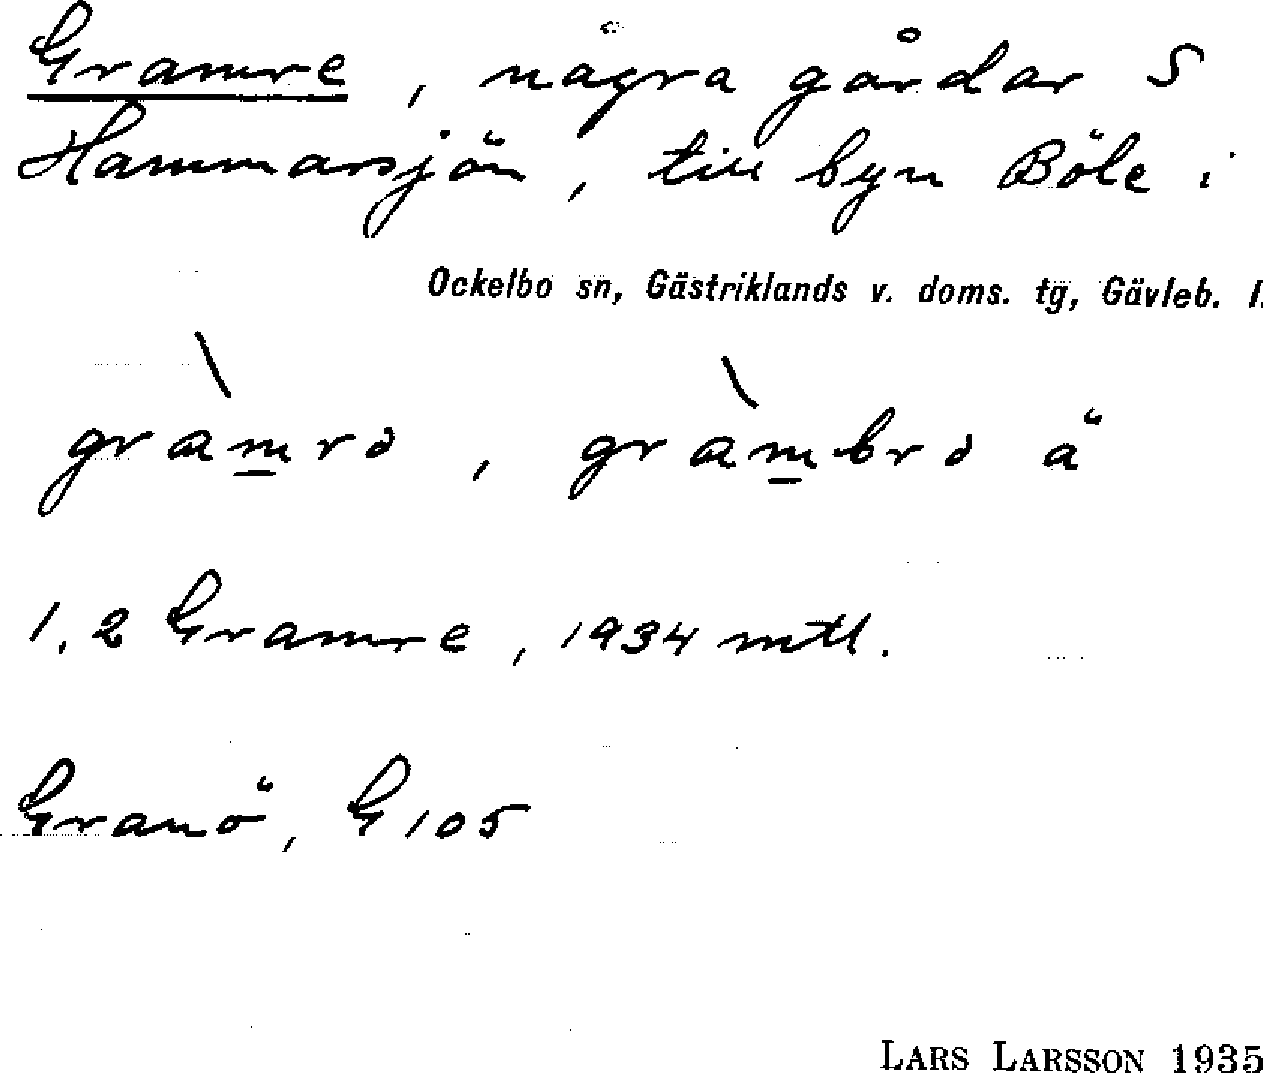 Gramre, några gårdar S
Hammarsjön, till byn Böle i
Ockelbo sn, Gästriklands v. doms. tg, Gävleb. l.
gràmrə, gràmbrə ä
1, 2 Gramre, 1934 mtl.
Granö, G 105
LARS LARSSON 1935